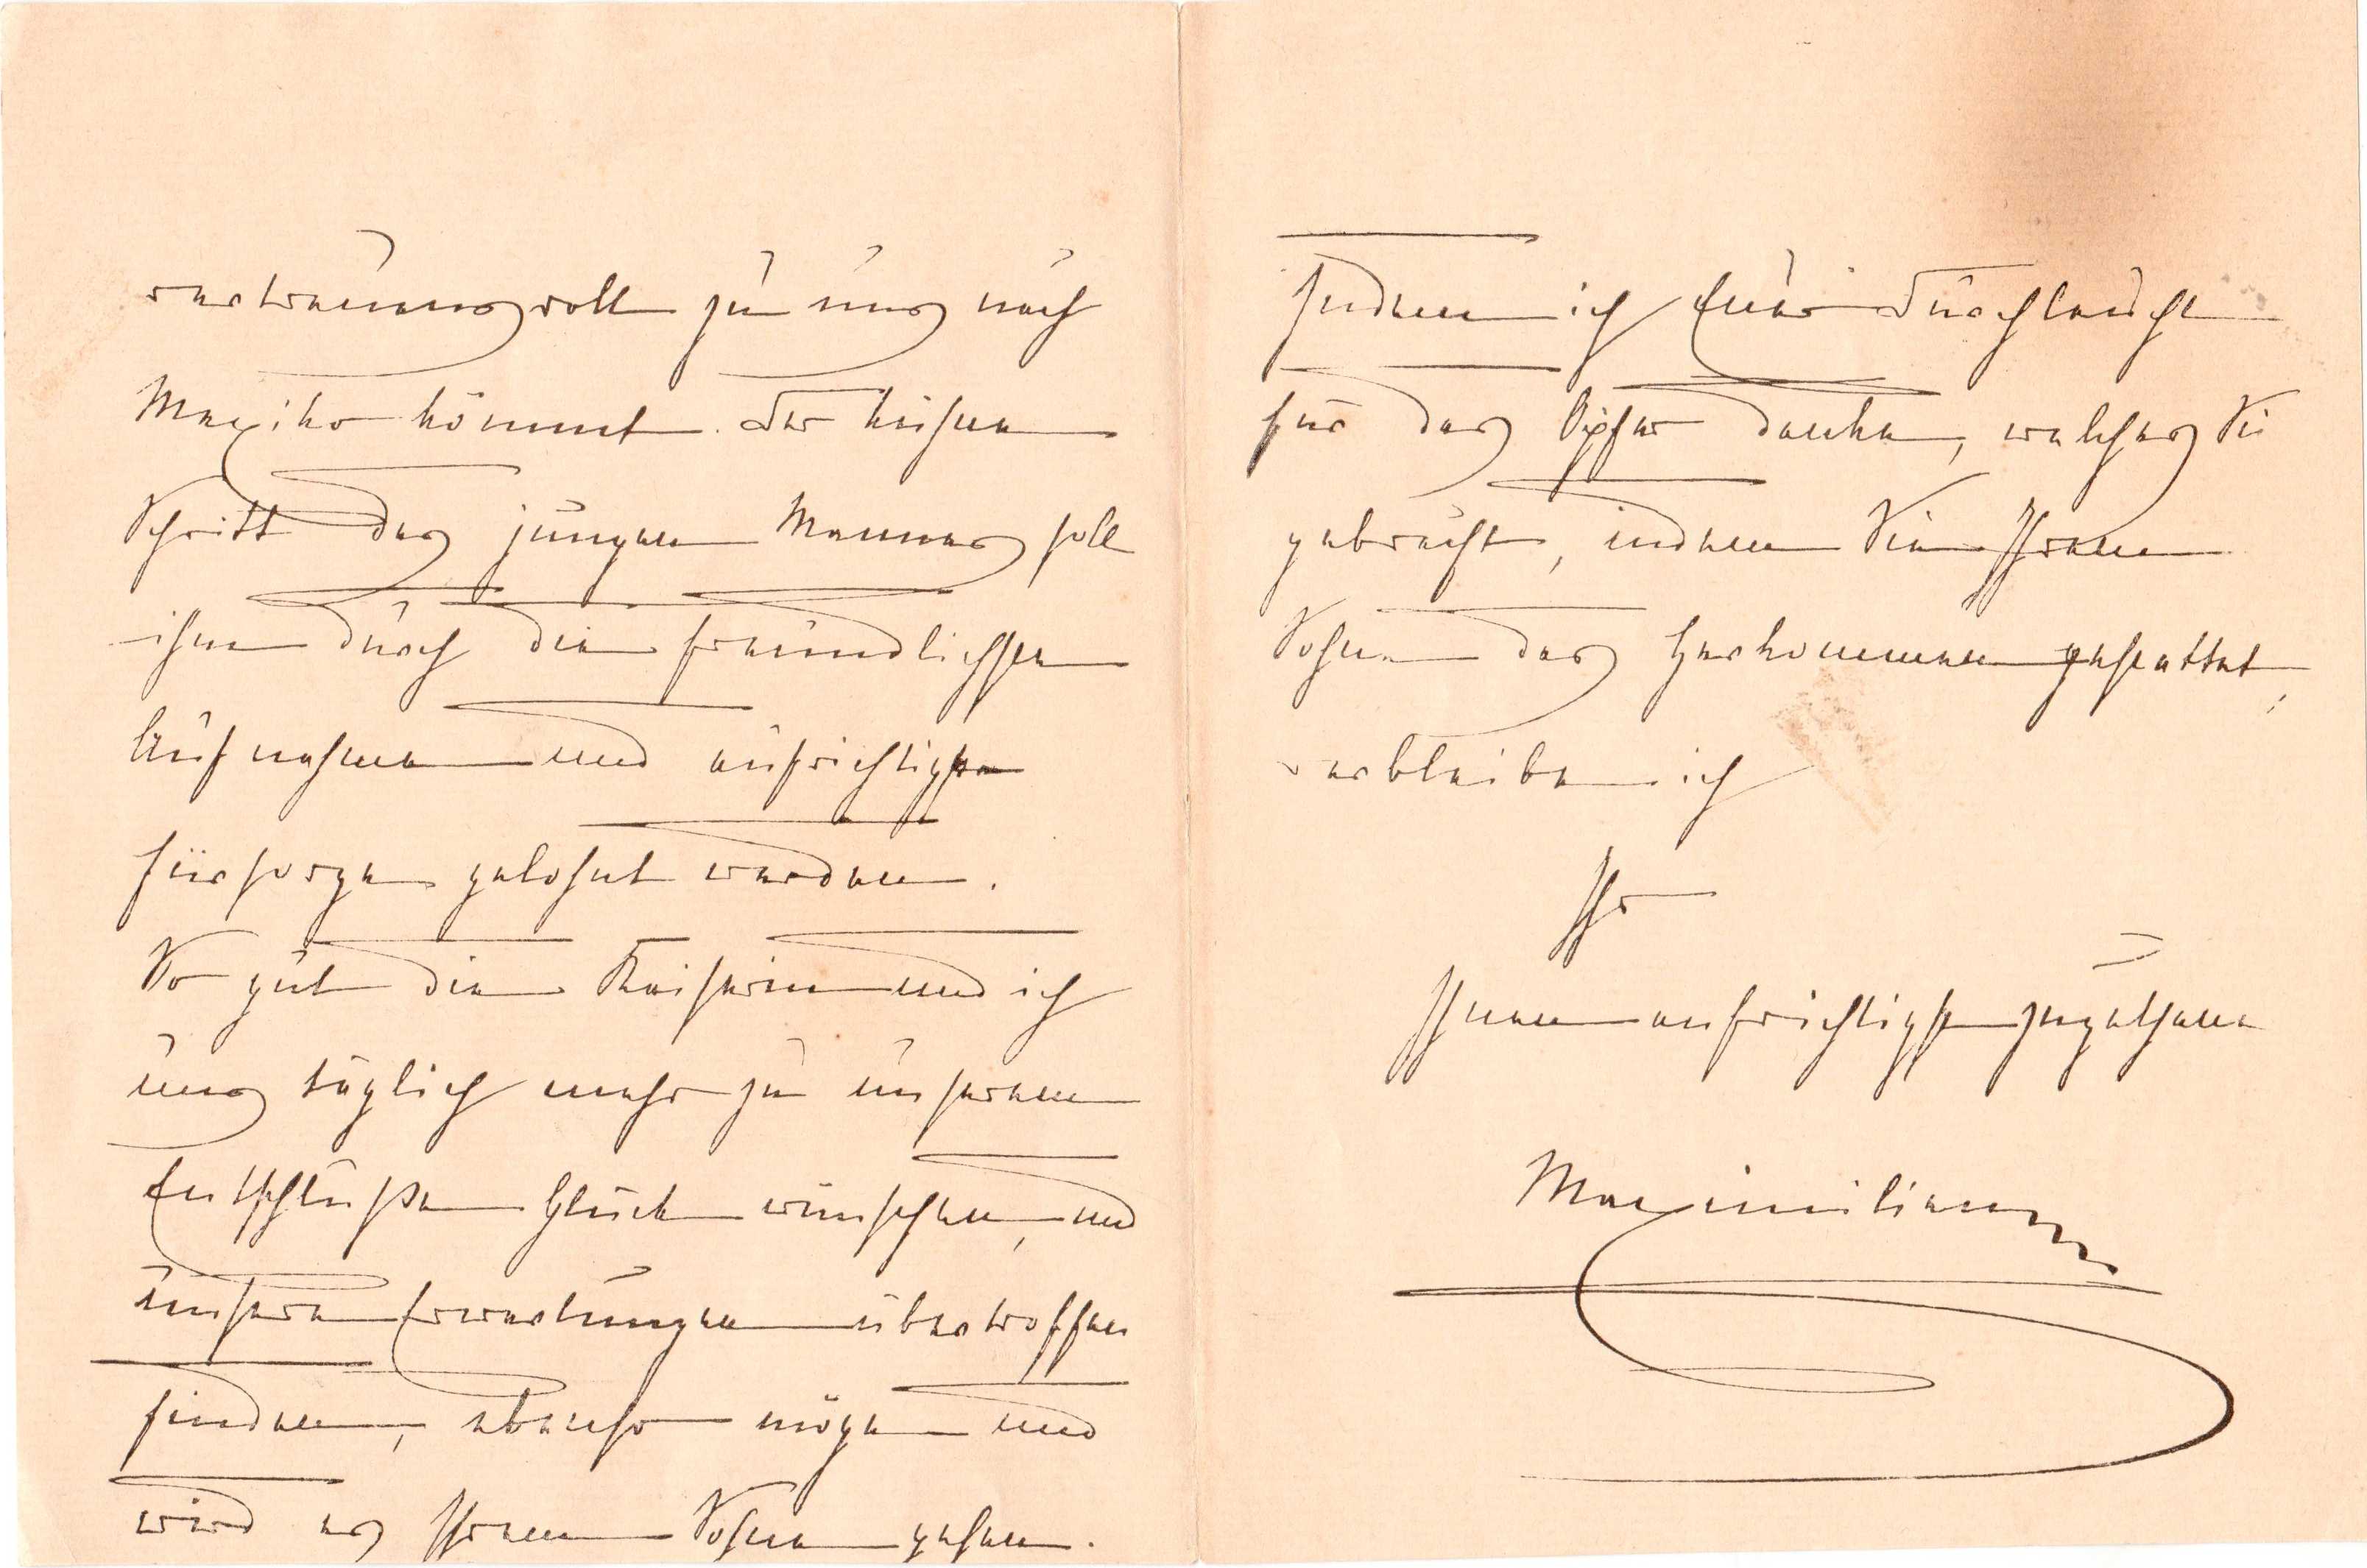 vertrauensvoll zu uns nach
Mexiko kömmt. Der kühne
Schritt des jungen Mannes soll
ihm durch die freundlichste
Aufnahme und aufrichtigste
Fürsorge gelohnt werden.
So gut die Kaiserin und ich
uns täglich mehr zu unserem
Entschluße Glück wünschen, und
unsere Erwartungen übertroffen
finden, ebenso möge und
wird es Ihrem Sohne gehen.
Indem ich Euer Durchlaucht
für das Opfer danke, welches Sie
gebracht, indem Sie Ihrem
Sohne das Herkommen gestattet,
verbleibe ich
Ihr
Ihnen aufrichtigst zugethane
Maximilian